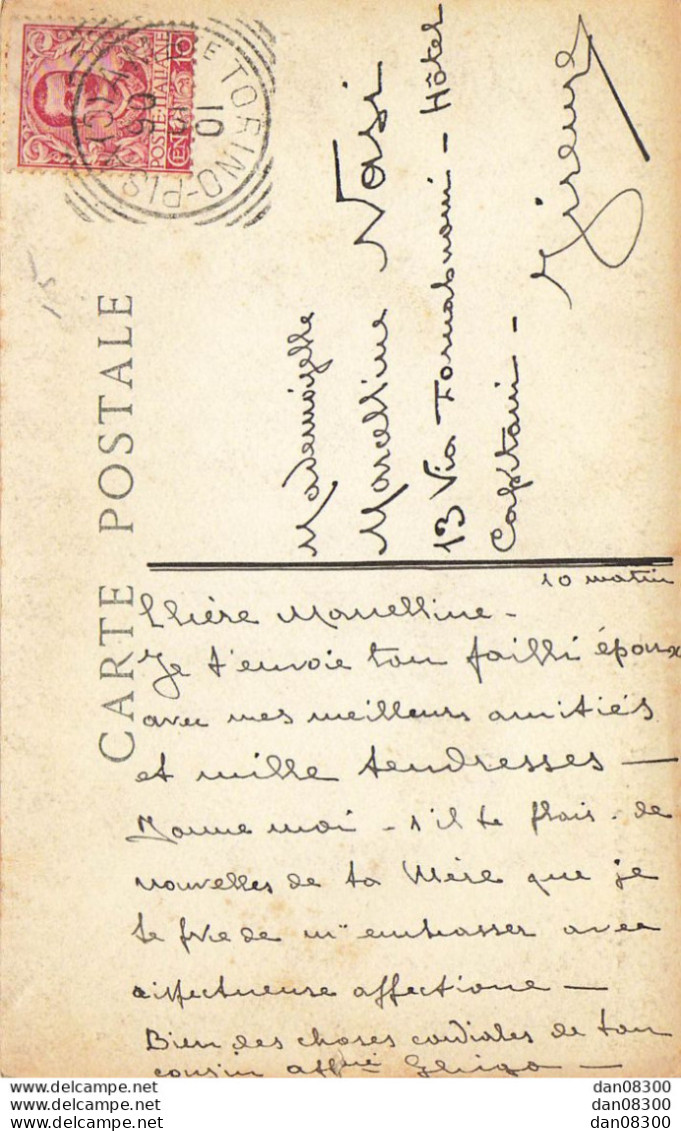 POSTE ITALIANE
TORINO
10
5
05
CARTE POSTALE
Mademoiselle
Marcelline Nasi
13 Via Tornabuoni - Hôtel
Capitani -
Firenze
10 matin
Chère Marcelline -
Je t'envoie ton failli époux
avec mes meilleurs amitiés
et mille tendresses -
Donne moi - s'il te plais - de
nouvelles de ta Mère que je
te prie de m' embrasser avec
affectueuse affectione -
Bien des choses cordiales de ton
cousin aff Ghigo -
dan08300
dan08300
dan08300